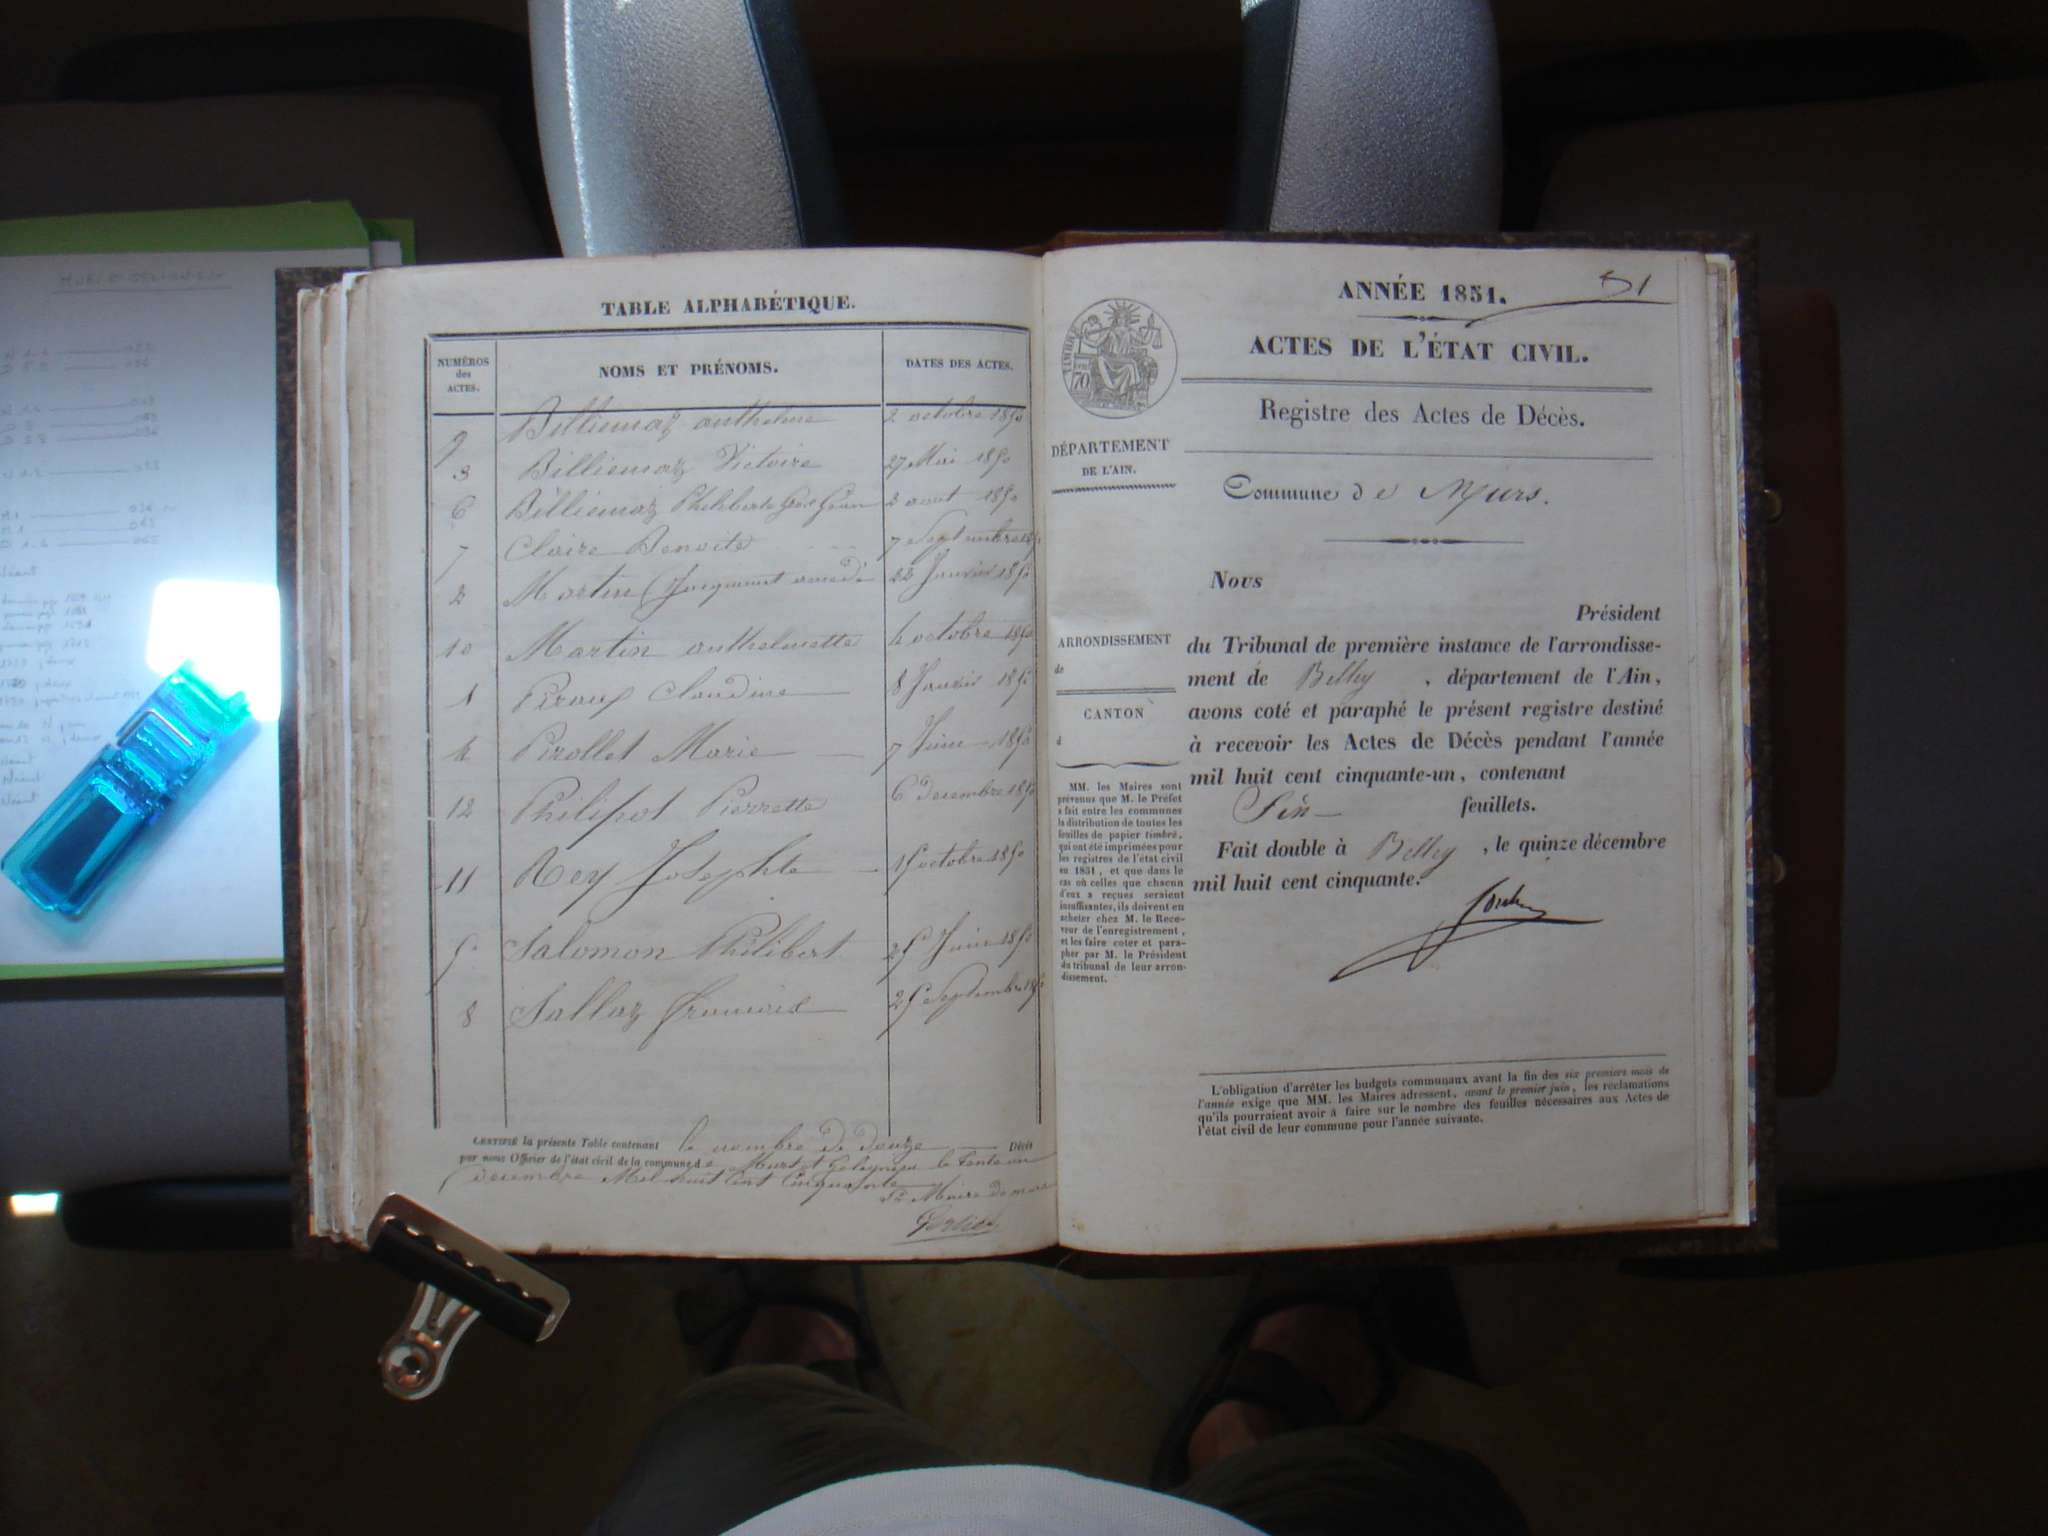 TABLE ALPHABÉTIQUE.
NUMÉROS des ACTES. NOMS ET PRÉNOMS. DATES DES ACTES.
9 Billiemaz anthelme 2 octobre 1850
3 Billiemaz Victoire 27 Mai 1850
6 Billiemaz Philiberte 2 aout 1850
7 Claire Benoite 7 Septembre
2 Martin 22 Janvier 1850
10 Martin anthelmette 4 octobre 1850
1 Claudine 8 Janvier 1850
4 Pirollet Marie 7 Juin 1850
12 Philipot Pierrette 6 Decembre 1850
11 Rey Josephte 15 octobre 1850
5 Salomon Philibert 25 Juin 1850
8 Sallaz francois 25 Septembre
CERTIFIÉ la présente Table contenant le nombre de douze Décès
par nous Officier de l'état civil de la commune de Murs et le trente un
decembre Mil huit cent Cinquante
Maire de murs
ANNÉE 1851. 51
ACTES DE L'ÉTAT CIVIL.
Registre des Actes de Décès.
TIMBRE
70
DÉPARTEMENT
DE L'AIN.
Commune de Murs.
ARRONDISSEMENT
de
CANTON
d
MM. les Maires sont
prévenus que M. le Préfet
a fait entre les communes
la distribution de toutes les
feuilles de papier timbré,
qui ont été imprimées pour
les registres de l'état civil
en 1851, et que dans le
cas où celles que chacun
d'eux a reçues seraient
insuffisantes, ils doivent en
acheter chez M. le Rece-
veur de l'enregistrement,
et les faire coter et para-
pher par M. le Président
du tribunal de leur arron-
dissement.
Nous
Président
du Tribunal de première instance de l'arrondisse-
ment de Belley , département de l'Ain,
avons coté et paraphé le présent registre destiné
à recevoir les Actes de Décès pendant l'année
mil huit cent cinquante-un, contenant
feuillets.
Fait double à Belley , le quinze décembre
mil huit cent cinquante.
L'obligation d'arrêter les budgets communaux avant la fin des six premiers mois de
l'année exige que MM. les Maires adressent, avant le premier juin, les réclamations
qu'ils pourraient avoir à faire sur le nombre des feuilles nécessaires aux Actes de
l'état civil de leur commune pour l'année suivante.